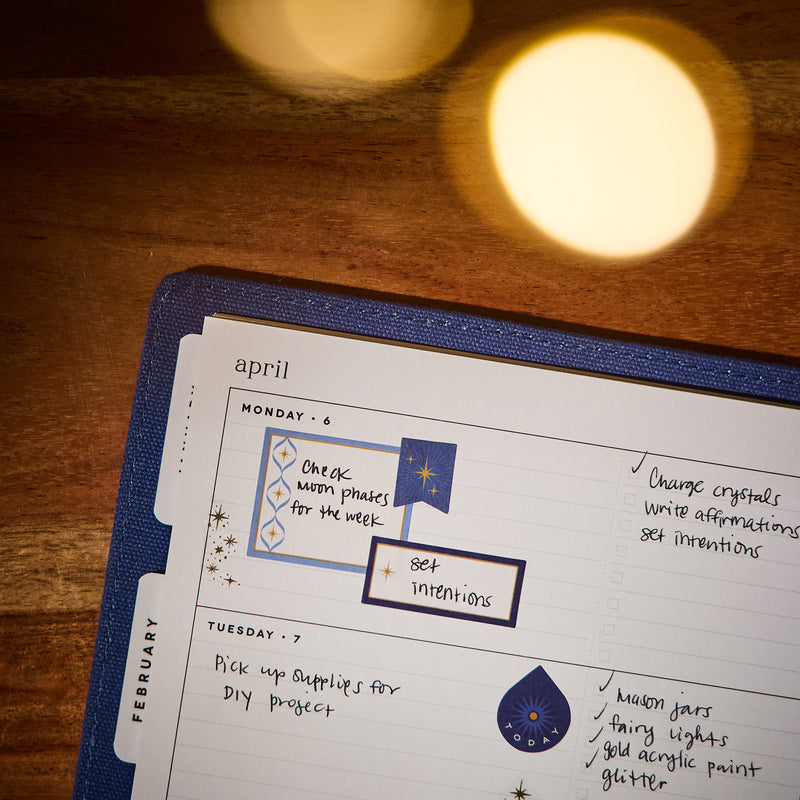 april
MONDAY • 6
Check
Moon phases
for the week
set
intentions
Charge crystals
write affirmations
set intentions
FEBRUARY
TUESDAY • 7
Pick up supplies for
DIY project
TODAY
Mason jars
fairy lights
gold acrylic paint
glitter